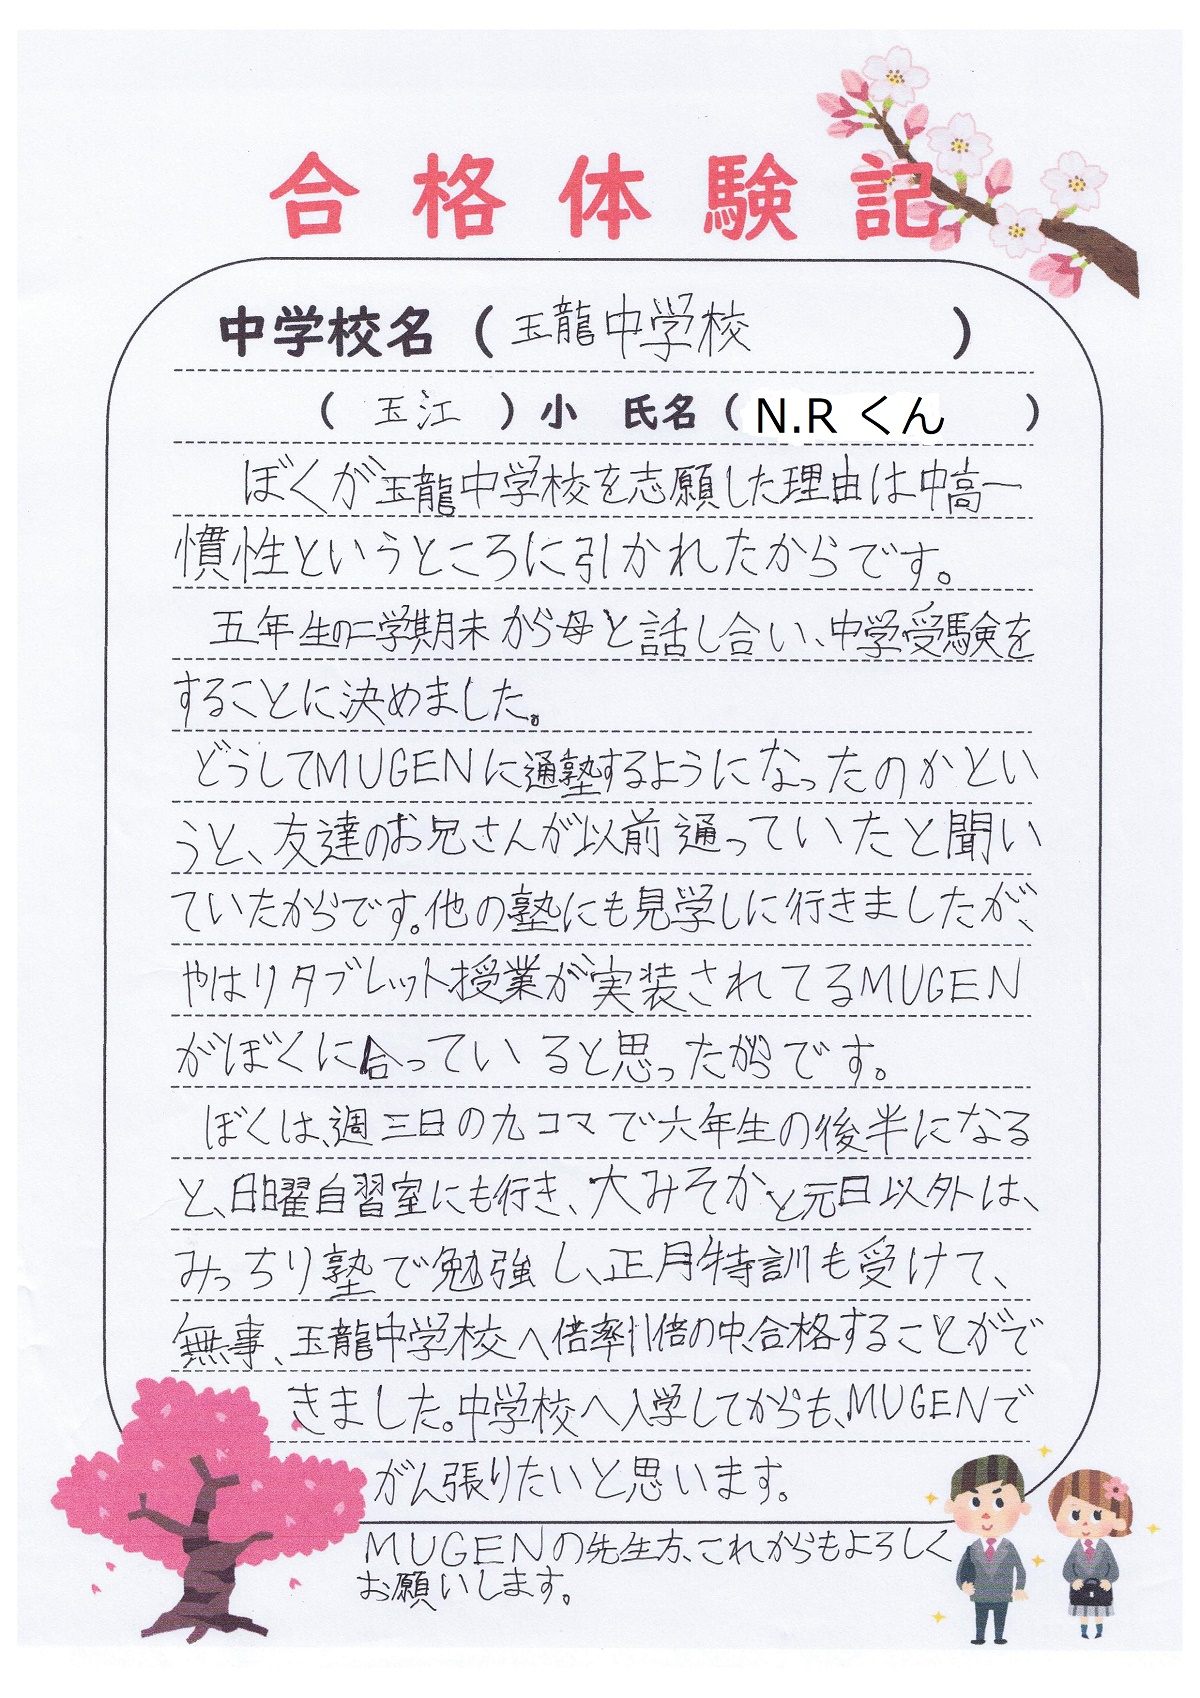 合格体験記
中学校名（玉龍中学校）
（玉江）小 氏名（N.R くん）
ぼくが玉龍中学校を志願した理由は中高一
慣性というところに引かれたからです。
五年生の二学期末から母と話し合い、中学受験を
することに決めました。
どうしてMUGENに通塾するようになったのかとい
うと、友達のお兄さんが以前通っていたと聞い
ていたからです。他の塾にも見学しに行きましたが、
やはりタブレット授業が実装されてるMUGEN
がぼくに合っていると思ったからです。
ぼくは、週三日の九コマで六年生の後半になる
と、日曜自習室にも行き、大みそかと元日以外は、
みっちり塾で勉強し、正月特訓も受けて、
無事、玉龍中学校へ倍率11倍の中、合格することがで
きました。中学校へ入学してからも、MUGENで
がん張りたいと思います。
MUGENの先生方、これからもよろしく
お願いします。